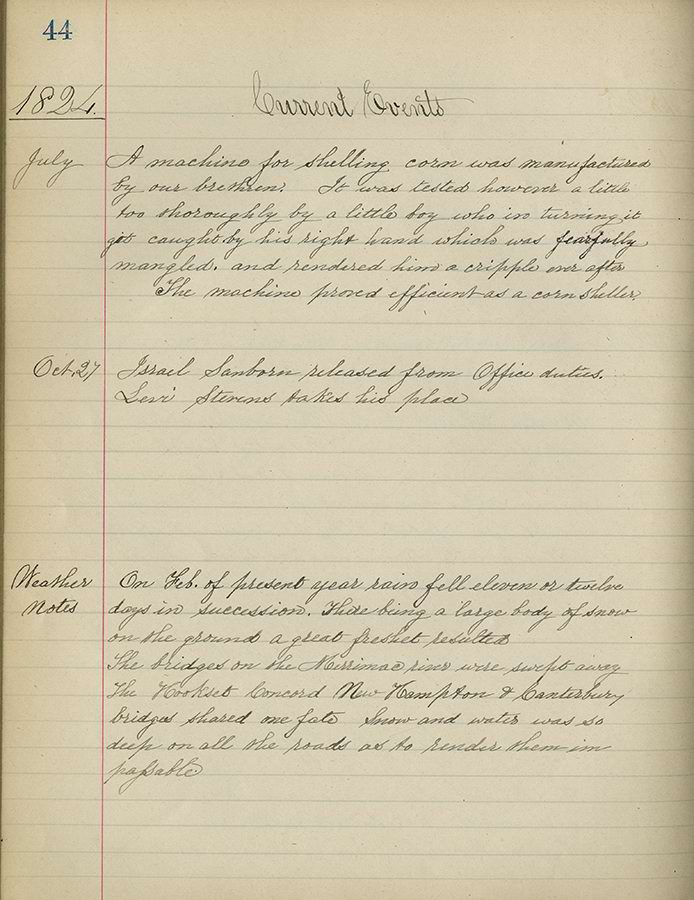 44
1824.
Current Events
July
A machine for shelling corn was manufactured
by our brethren. It was tested however a little
too thoroughly by a little boy who in turning it
got caught by his right hand which was fearfully
mangled. and rendered him a cripple ever after
The machine proved efficient as a corn sheller.
Oct. 27
Israel Sanborn released from Office duties.
Levi Stevens takes his place
Weather
Notes
On Feb. of present year rain fell eleven or twelve
days in succession. There being a large body of snow
on the ground a great freshet resulted
The bridges on the Merrimac river were swept away
The Hookset Concord New Hampton & Canterbury
bridges shared one fate Snow and water was so
deep on all the roads as to render them im
passable